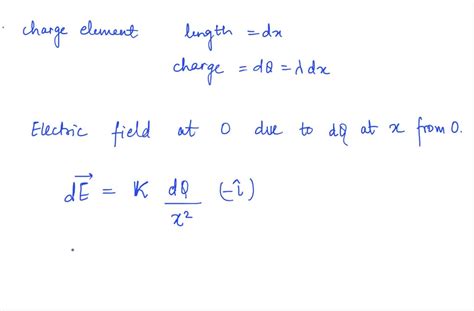 charge element length = dx
charge = dQ = λ dx
Electric field at O due to dQ at x from O.
dE⃗ = K dQ/x² (-î)